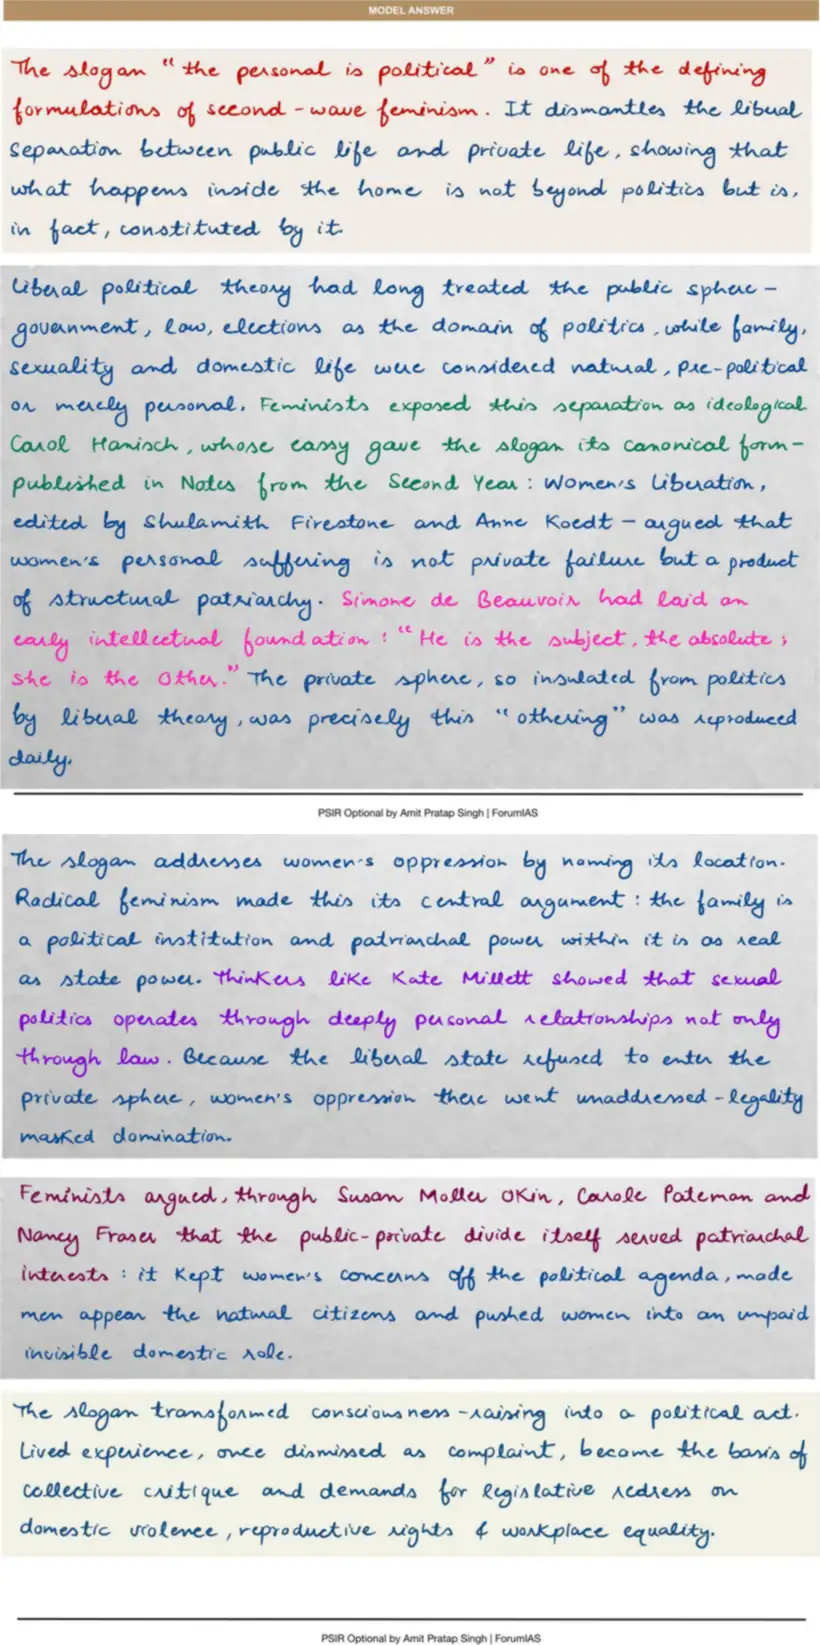 MODEL ANSWER
The slogan "the personal is political" is one of the defining
formulations of second-wave feminism. It dismantles the liberal
separation between public life and private life, showing that
what happens inside the home is not beyond politics but is,
in fact, constituted by it.
Liberal political theory had long treated the public sphere –
government, law, elections as the domain of politics, while family,
sexuality and domestic life were considered natural, pre-political
or merely personal. Feminists exposed this separation as ideological
Carol Hanisch, whose eassy gave the slogan its canonical form –
published in Notes from the Second Year: Women's Liberation,
edited by Shulamith Firestone and Anne Koedt – argued that
women's personal suffering is not private failure but a product
of structural patriarchy. Simone de Beauvoir had laid an
early intellectual foundation: "He is the subject, the absolute;
she is the Other." The private sphere, so insulated from politics
by liberal theory, was precisely this "othering" was reproduced
daily.
PSIR Optional by Amit Pratap Singh | ForumIAS
The slogan addresses women's oppression by naming its location.
Radical feminism made this its central argument: the family is
a political institution and patriarchal power within it is as real
as state power. Thinkers like Kate Millett showed that sexual
politics operates through deeply personal relationships not only
through law. Because the liberal state refused to enter the
private sphere, women's oppression there went unaddressed – legality
masked domination.
Feminists argued, through Susan Moller Okin, Carole Pateman and
Nancy Fraser that the public-private divide itself served patriarchal
interests: it kept women's concerns off the political agenda, made
men appear the natural citizens and pushed women into an unpaid
invisible domestic role.
The slogan transformed consciousness-raising into a political act.
Lived experience, once dismissed as complaint, became the basis of
collective critique and demands for legislative redress on
domestic violence, reproductive rights & workplace equality.
PSIR Optional by Amit Pratap Singh | ForumIAS